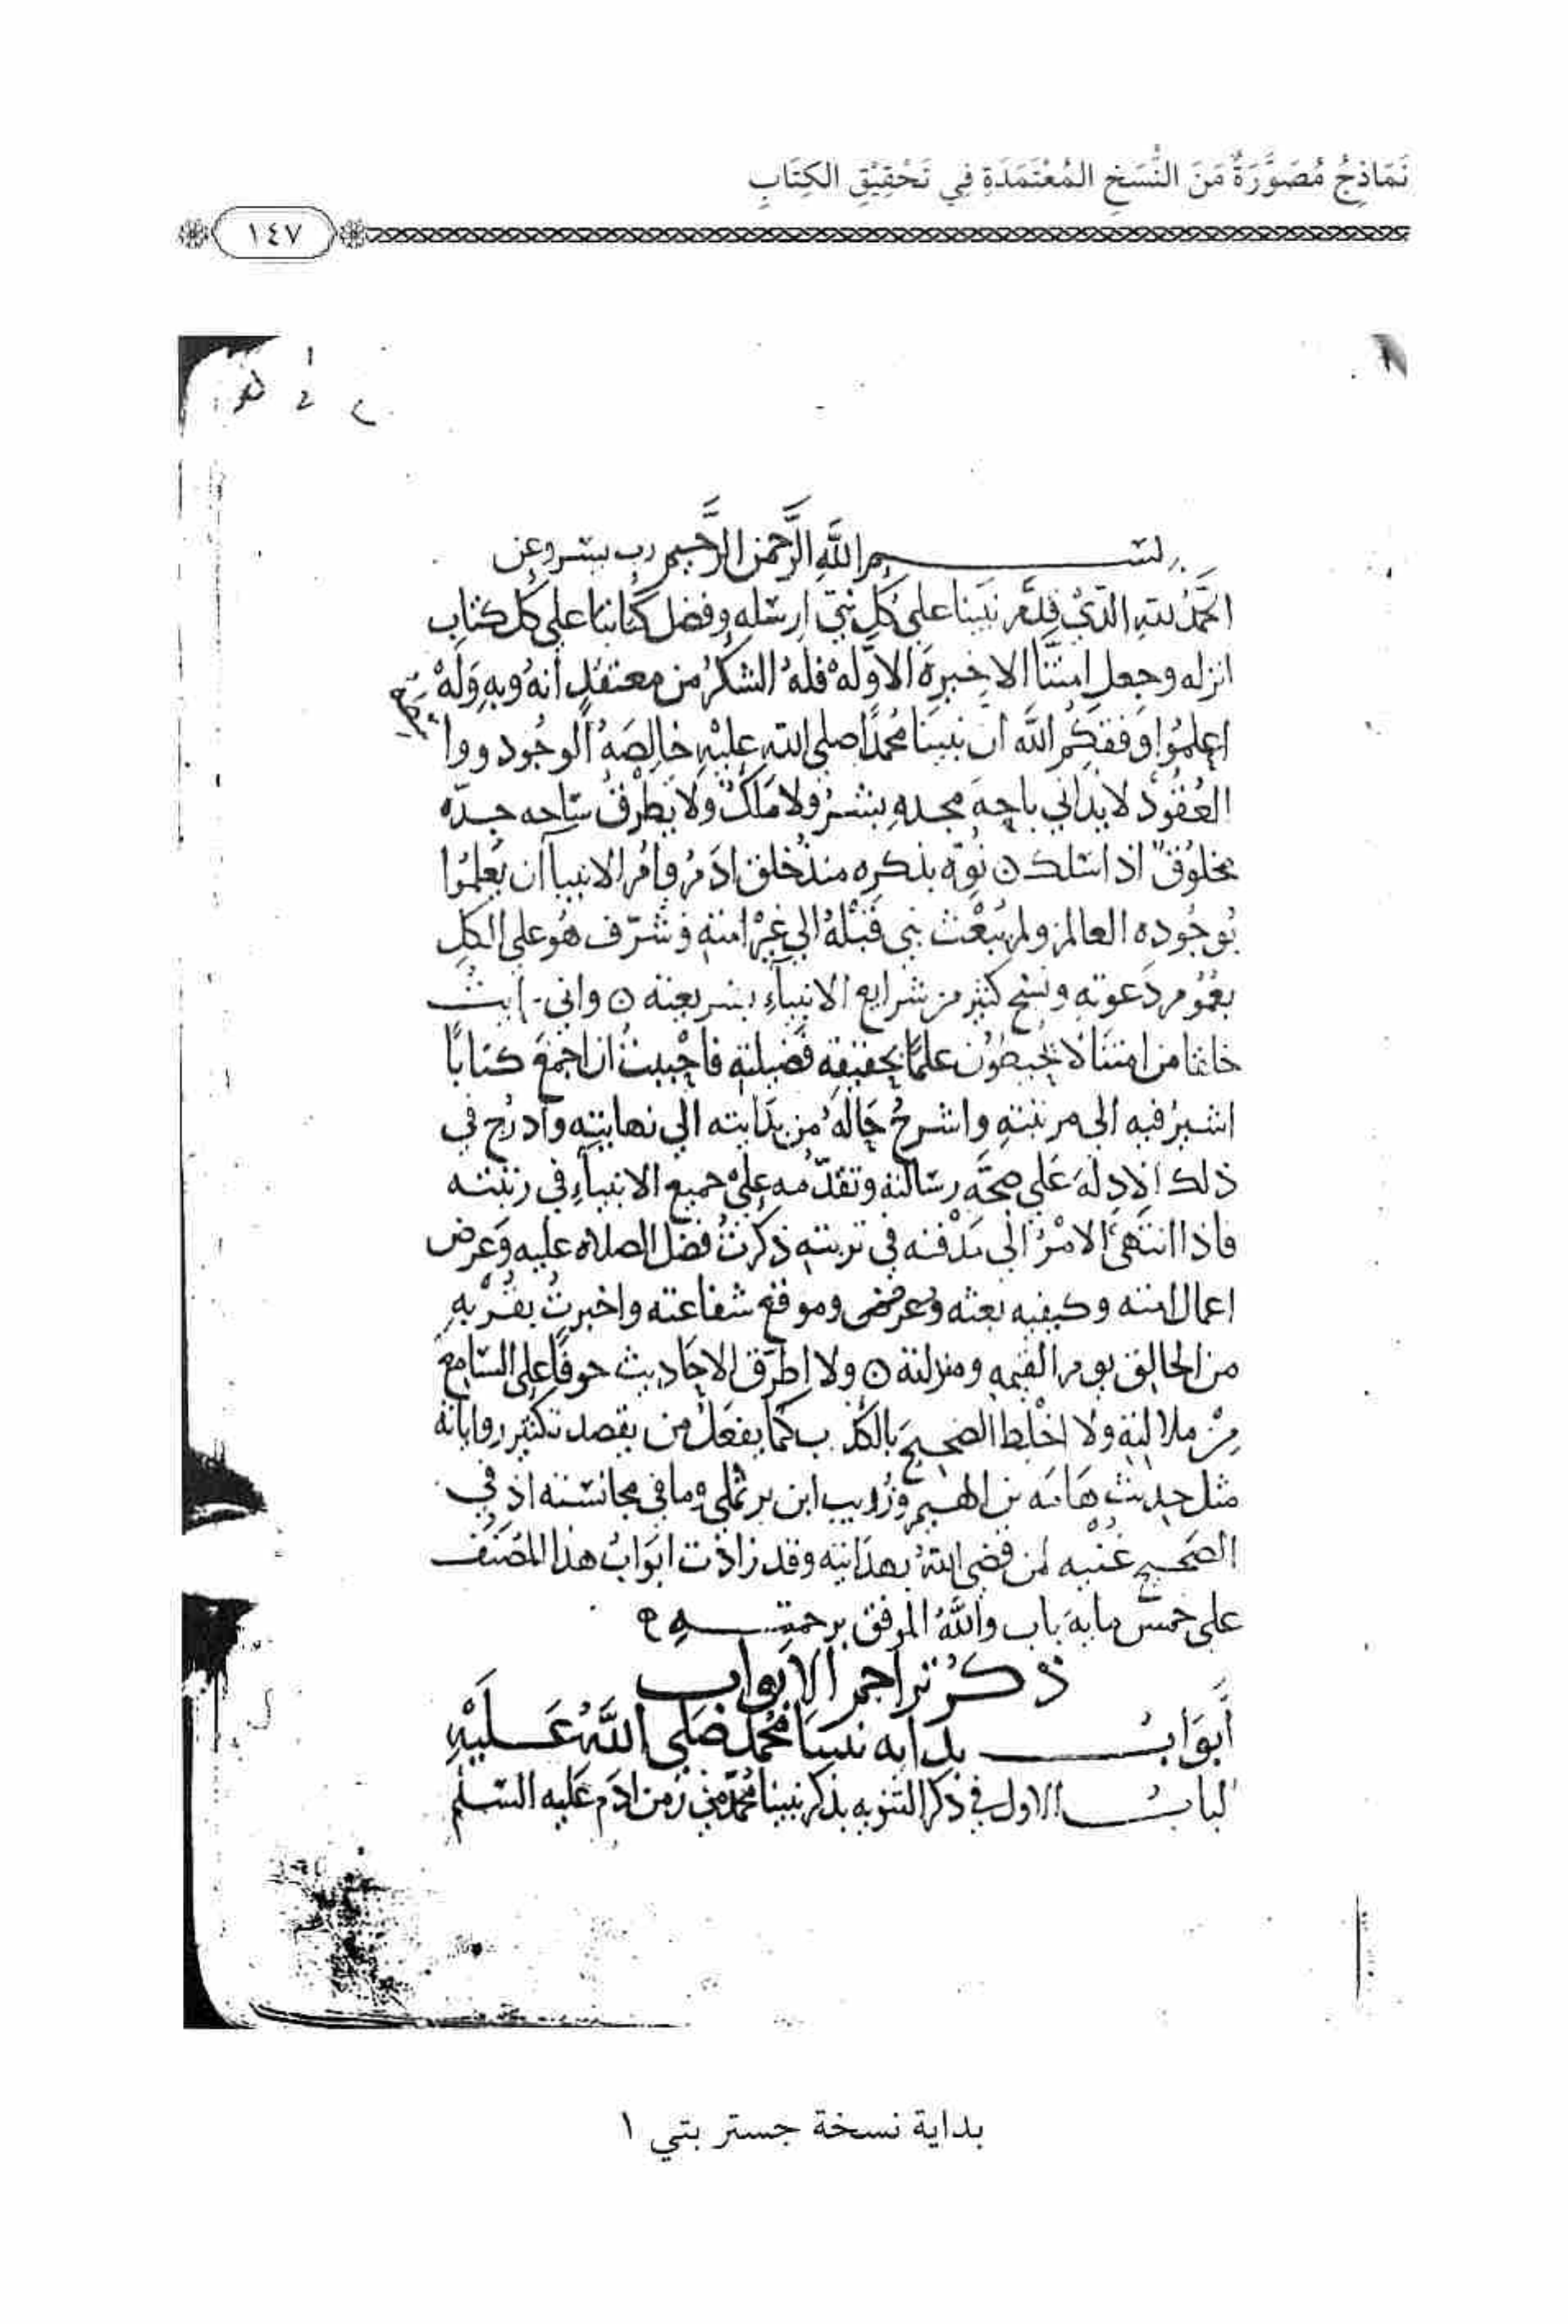 نَمَاذِجُ مُصَوَّرَةٌ مَنَ النُّسَخِ المُعْتَمَدَةِ فِي تَحْقِيْقِ الكِتَابِ
١٤٧
بسم الله الرَّحمن الرَّحيم رب يسر وعن
الحَمْدُ لله الذي قدَّم نبينا على كل نبي ارسله وفضل كتابنا على كل كتاب
انزله وجعل امتنا الاخيرة الاوله فله الشكر من معتقد انه وبه وله
اعلموا وفقكم الله ان نبينا محمدًا صلى الله عليه خالصه الوجود وواسطة
العقود لا يداني باحة مجده بشر ولا ملك ولا يطرق ساحه جده
مخلوق اذا سلك ن نوه بذكره منذ خلق ادم وامر الانبيا ان يعلموا
بوجوده العالم ولم يبعث نبي قبله الي غير امته وشرف هو على الكل
بعموم دعوته ونسخ كثير من شرايع الانبياء بشريعته ن واني رايت
خلقا من امتنا لا يحيطون علمًا بحقيقه فضيلته فاحببت ان اجمع كتابًا
اشير فيه الى مرتبته واشرح حاله من بدايته الى نهايته وادرج في
ذلك الادلة على صحة رسالته وتقدمه على جميع الانبياء في رتبته
فاذا انتهى الامر الى مدفنه في تربته ذكرت فضل الصلاه عليه وعرض
اعمال امته وكيفيه بعثه وموقع شفاعته واخبرت بقربه
من الخالق يوم القيمه ومنزلته ن ولا اطرق الاحاديث خوفا على السامع
من ملالته ولا اخلط الصحيح بالكذب كما يفعل من يقصد تكثير رواياته
مثل حديث هامه بن الهيم وزريب ابن برثملي وما في مجانسته اذ في
الصحيح غنيه لمن قضى الله بهدايته وقد زادت ابواب هذا المصنف
على خمس مايه باب والله الموفق برحمته
ذكر تراجم الابواب
أبواب بدايه نبينا محمد صلى الله عليه
الباب الاول في ذكر التنويه بذكر نبينا محمد من زمن ادم عليه السلم
بداية نسخة جستر بتي ١